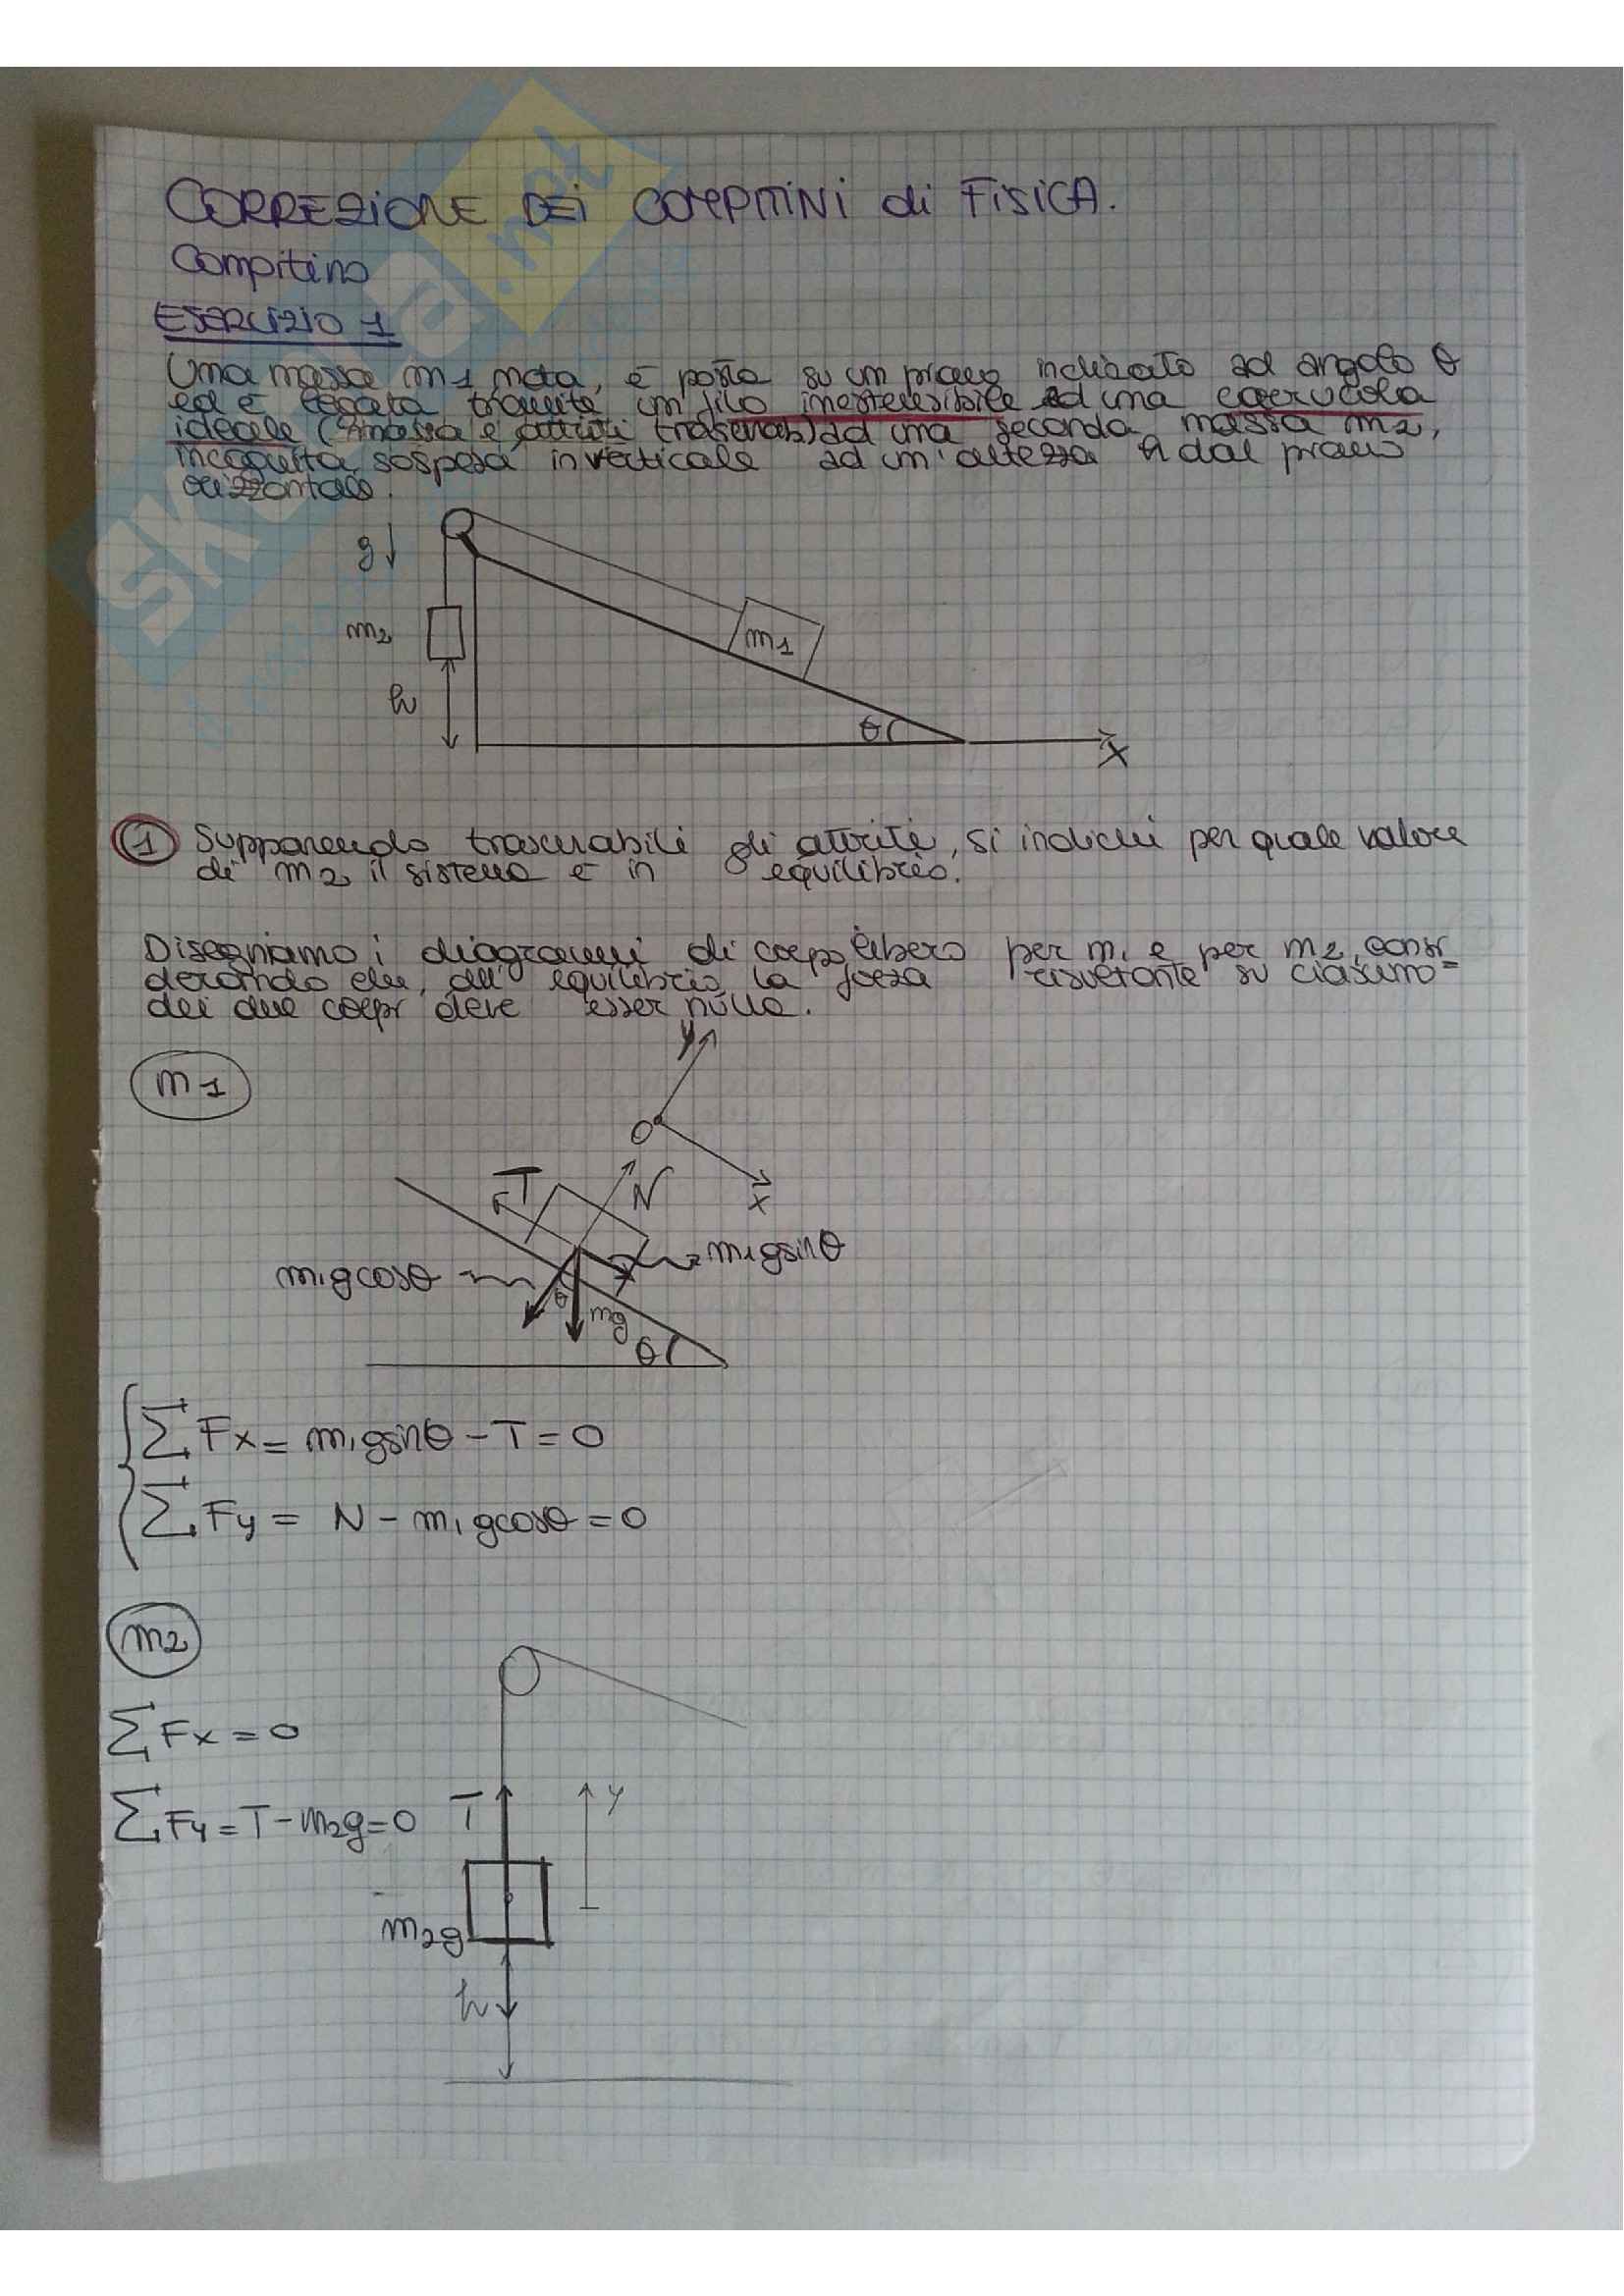 CORREZIONE DEI COMPITINI di FISICA.
Compitino
ESERCIZIO 1
Una massa m1 nota, è posta su un piano inclinato ad angolo θ
ed è legata tramite un filo inestensibile ed una carrucola
ideale (massa e attriti trascurab) ad una seconda massa m2,
incognita, sospesa in verticale ad un'altezza h dal piano
orizzontale.
g↓
m2
m1
h
θ
x
1 Supponendo trascurabili gli attriti, si indichi per quale valore
di m2 il sistema è in equilibrio.
Disegniamo i diagrammi di corpo libero per m1 e per m2, consi
derando che, all'equilibrio la forza risultante su ciascuno
dei due corpi deve esser nulla.
y
m1
O
x
T
N
m1gcosθ
m1gsinθ
θ
mg
θ
∑Fx = m1gsinθ - T = 0
∑Fy = N - m1gcosθ = 0
m2
∑Fx = 0
∑Fy = T - m2g = 0
T
y
m2g
h
skuola.net